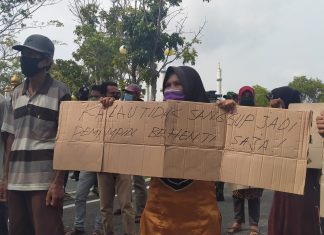 KALAU TIDAK SANGGUP JADI
PEMIMPIN BERHENTI SAJA!